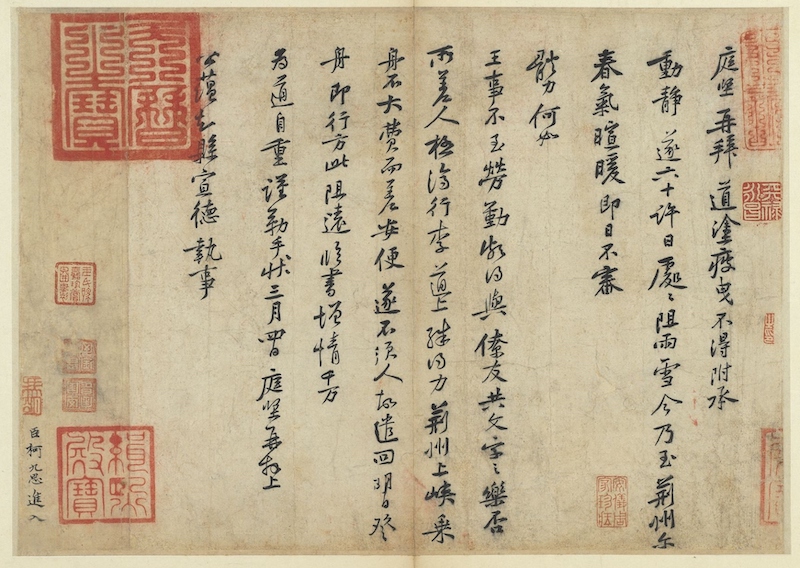 庭堅再拜道塗疲曳不得附承
動靜遂六十許日處〻阻雨雪今乃至荊州尔
春氣暄暖即日不審
體力何如
王事不至勞勤頗得與僚友共文字之樂否
所差人極濟行李道上殊得力荊州上峽乘
舟不大費而差安便遂不須人故遣回明日登
舟即行方此阻遠臨書增情千万
為道自重謹勒手狀三月四日庭堅再拜上
公蘊知縣宣德執事
臣柯九思進入
天曆之寶
緝熙殿寶